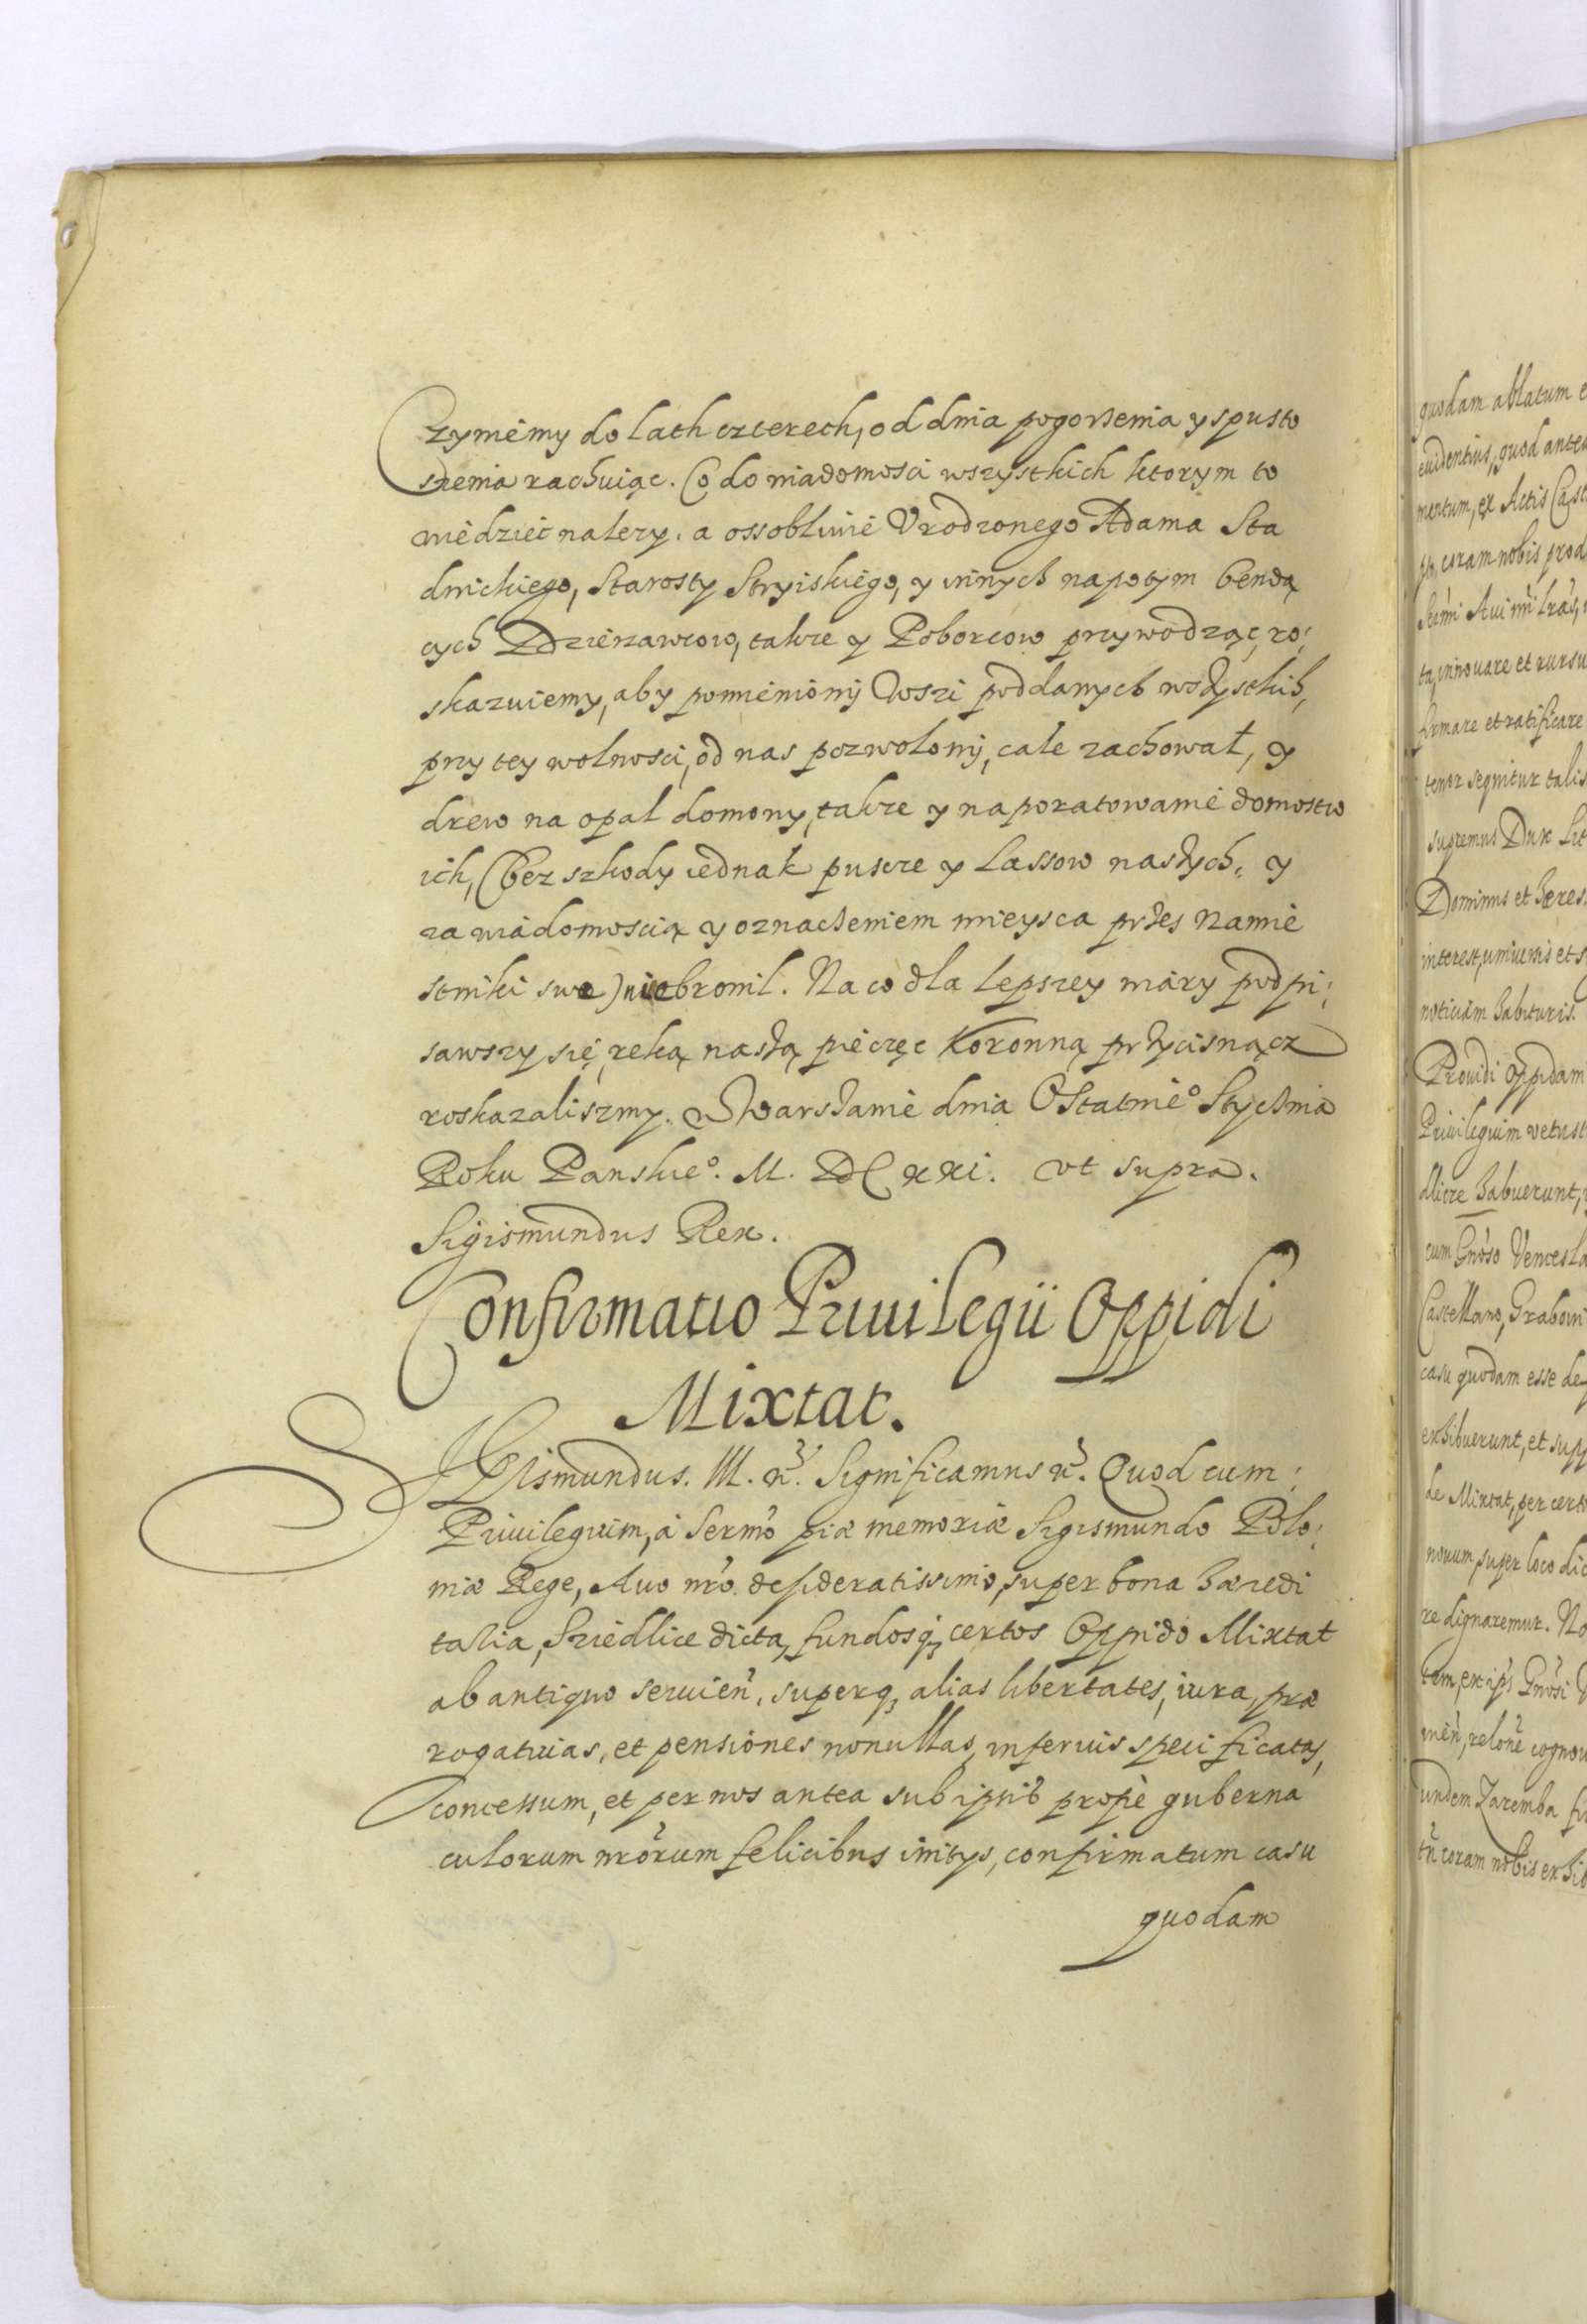 Czymiemy do lath czterech, od dnia pogorzenia y spusto
szenia rachuiąc. Co do wiadomosci wszystkich ktorym to
wiedziec nalezy. a ossobliwie Vrodzonego Adama Sta
dnickiego, Starosty Stryiskiego, y innych napotym bendą
cych Dzierzawcow, takze y Poborcow przywodząc, ro:
skazuiemy, aby pomienioni Wszi poddanych wszystkich,
przy tey wolnosci, od nas pozwoloni, cale zachował, y
drew na opal domowy, takze y na poratowanie domostw
ich, (bez szkody iednak puscze y Lassow naszych, y
za wiadomoscią y oznaczeniem mieysca przes Namie
stniki swe) nie bronil. Na co dla lepszey wiary podpi:
sawszy się ręką naszą pieczęc Koronną przycisnącz
roskazaliszmy. w Warszawie dnia Ostatnie° Stycznia
Roku Panskie°. M. DC XXI. vt supra.
Sigismundus Rex.
Confirmatio Priuilegii Oppidi
Mixtat.
SIGismundus. III. rc. Significamus rc. Quod cum:
Priuilegium, à Sermo piæ memoriæ Sigismundo Polo:
niæ Rege, Auo nro desideratissimo, super bona hæredi
taria, Sziedlice dicta, fundosq, certos Oppido Mixtat
ab antiquo seruien, superq, alias libertates, iura, præ
rogatiuas, et pensiones nonullas, inferius specificatas,
concessum, et per nos antea sub ipsis propè guberna
culorum nrorum felicibus initys, confirmatum casu
quodam
quodam ablatum e
euidentius, quod antea
mentum, ex Actis Cast
coram nobis prod
ta, innouare et rursu
firmare et ratificare
tenor sequitur talis
supremus Dux Lit
Dominus et hæres
interest, uniuersis et s
notitiam habituris.
Prouidi oppidam
Priuilegium vetust
dlicze habuerunt,
cum Gnoso Vencesla
Castellano, Grabowi
casu quodam esse de
exhibuerunt, et supp
de Mixtat, per cert
nouum super loco dic
re dignaremur. No
tem, ex ips Gnosi
men, relone cognou
undem Zaremba
tn coram nobis exhib